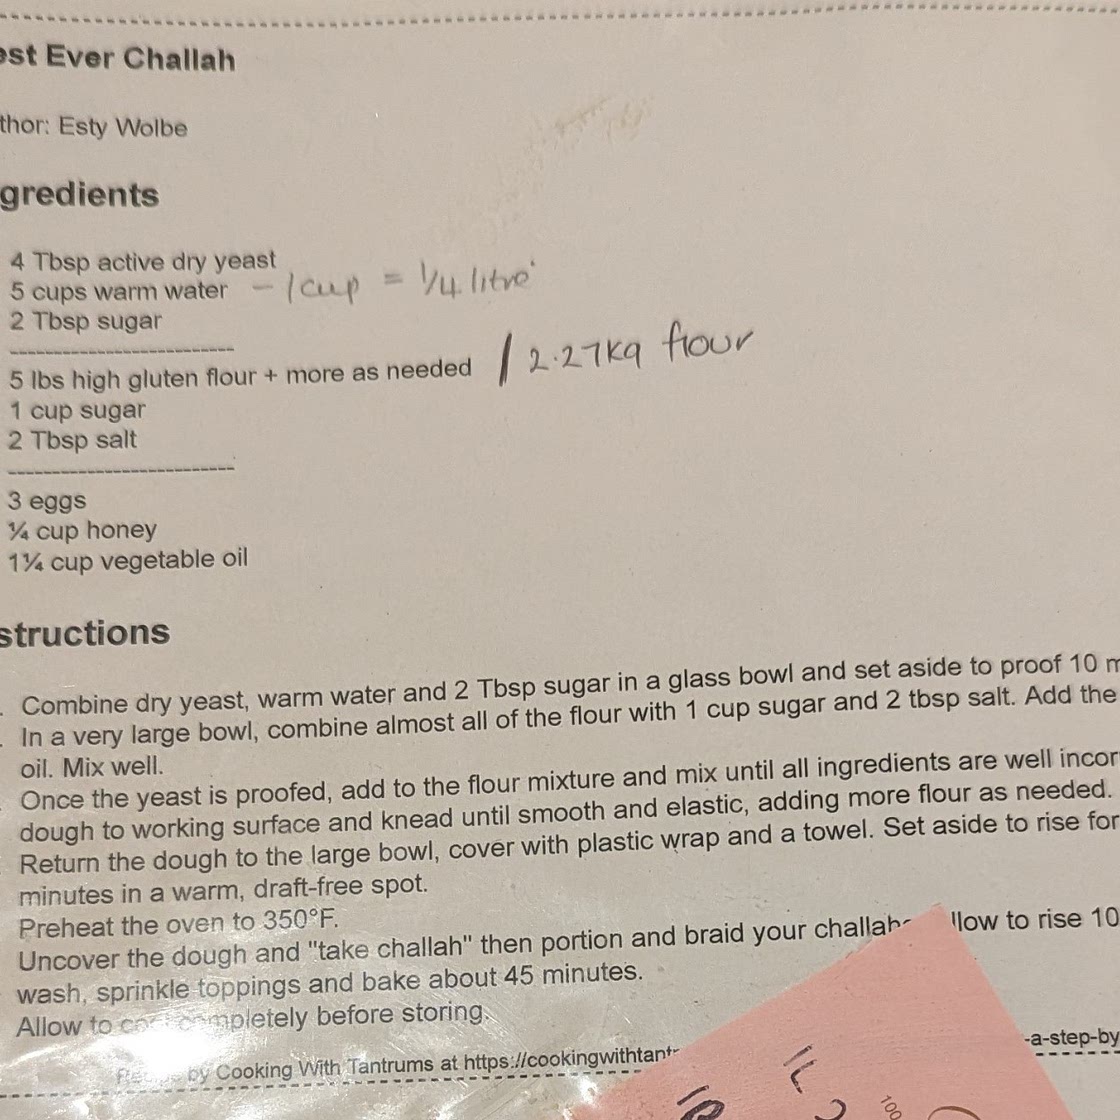 est Ever Challah
thor: Esty Wolbe
gredients
4 Tbsp active dry yeast
5 cups warm water - 1 cup = 1/4 litre
2 Tbsp sugar
5 lbs high gluten flour + more as needed / 2.27kg flour
1 cup sugar
2 Tbsp salt
3 eggs
¼ cup honey
1¼ cup vegetable oil
structions
Combine dry yeast, warm water and 2 Tbsp sugar in a glass bowl and set aside to proof 10 m
In a very large bowl, combine almost all of the flour with 1 cup sugar and 2 tbsp salt. Add the
oil. Mix well.
Once the yeast is proofed, add to the flour mixture and mix until all ingredients are well incor
dough to working surface and knead until smooth and elastic, adding more flour as needed.
Return the dough to the large bowl, cover with plastic wrap and a towel. Set aside to rise for
minutes in a warm, draft-free spot.
Preheat the oven to 350°F.
Uncover the dough and "take challah" then portion and braid your challah llow to rise 10
wash, sprinkle toppings and bake about 45 minutes.
Allow to completely before storing.
by Cooking With Tantrums at https://cookingwithtant -a-step-by
1L
100